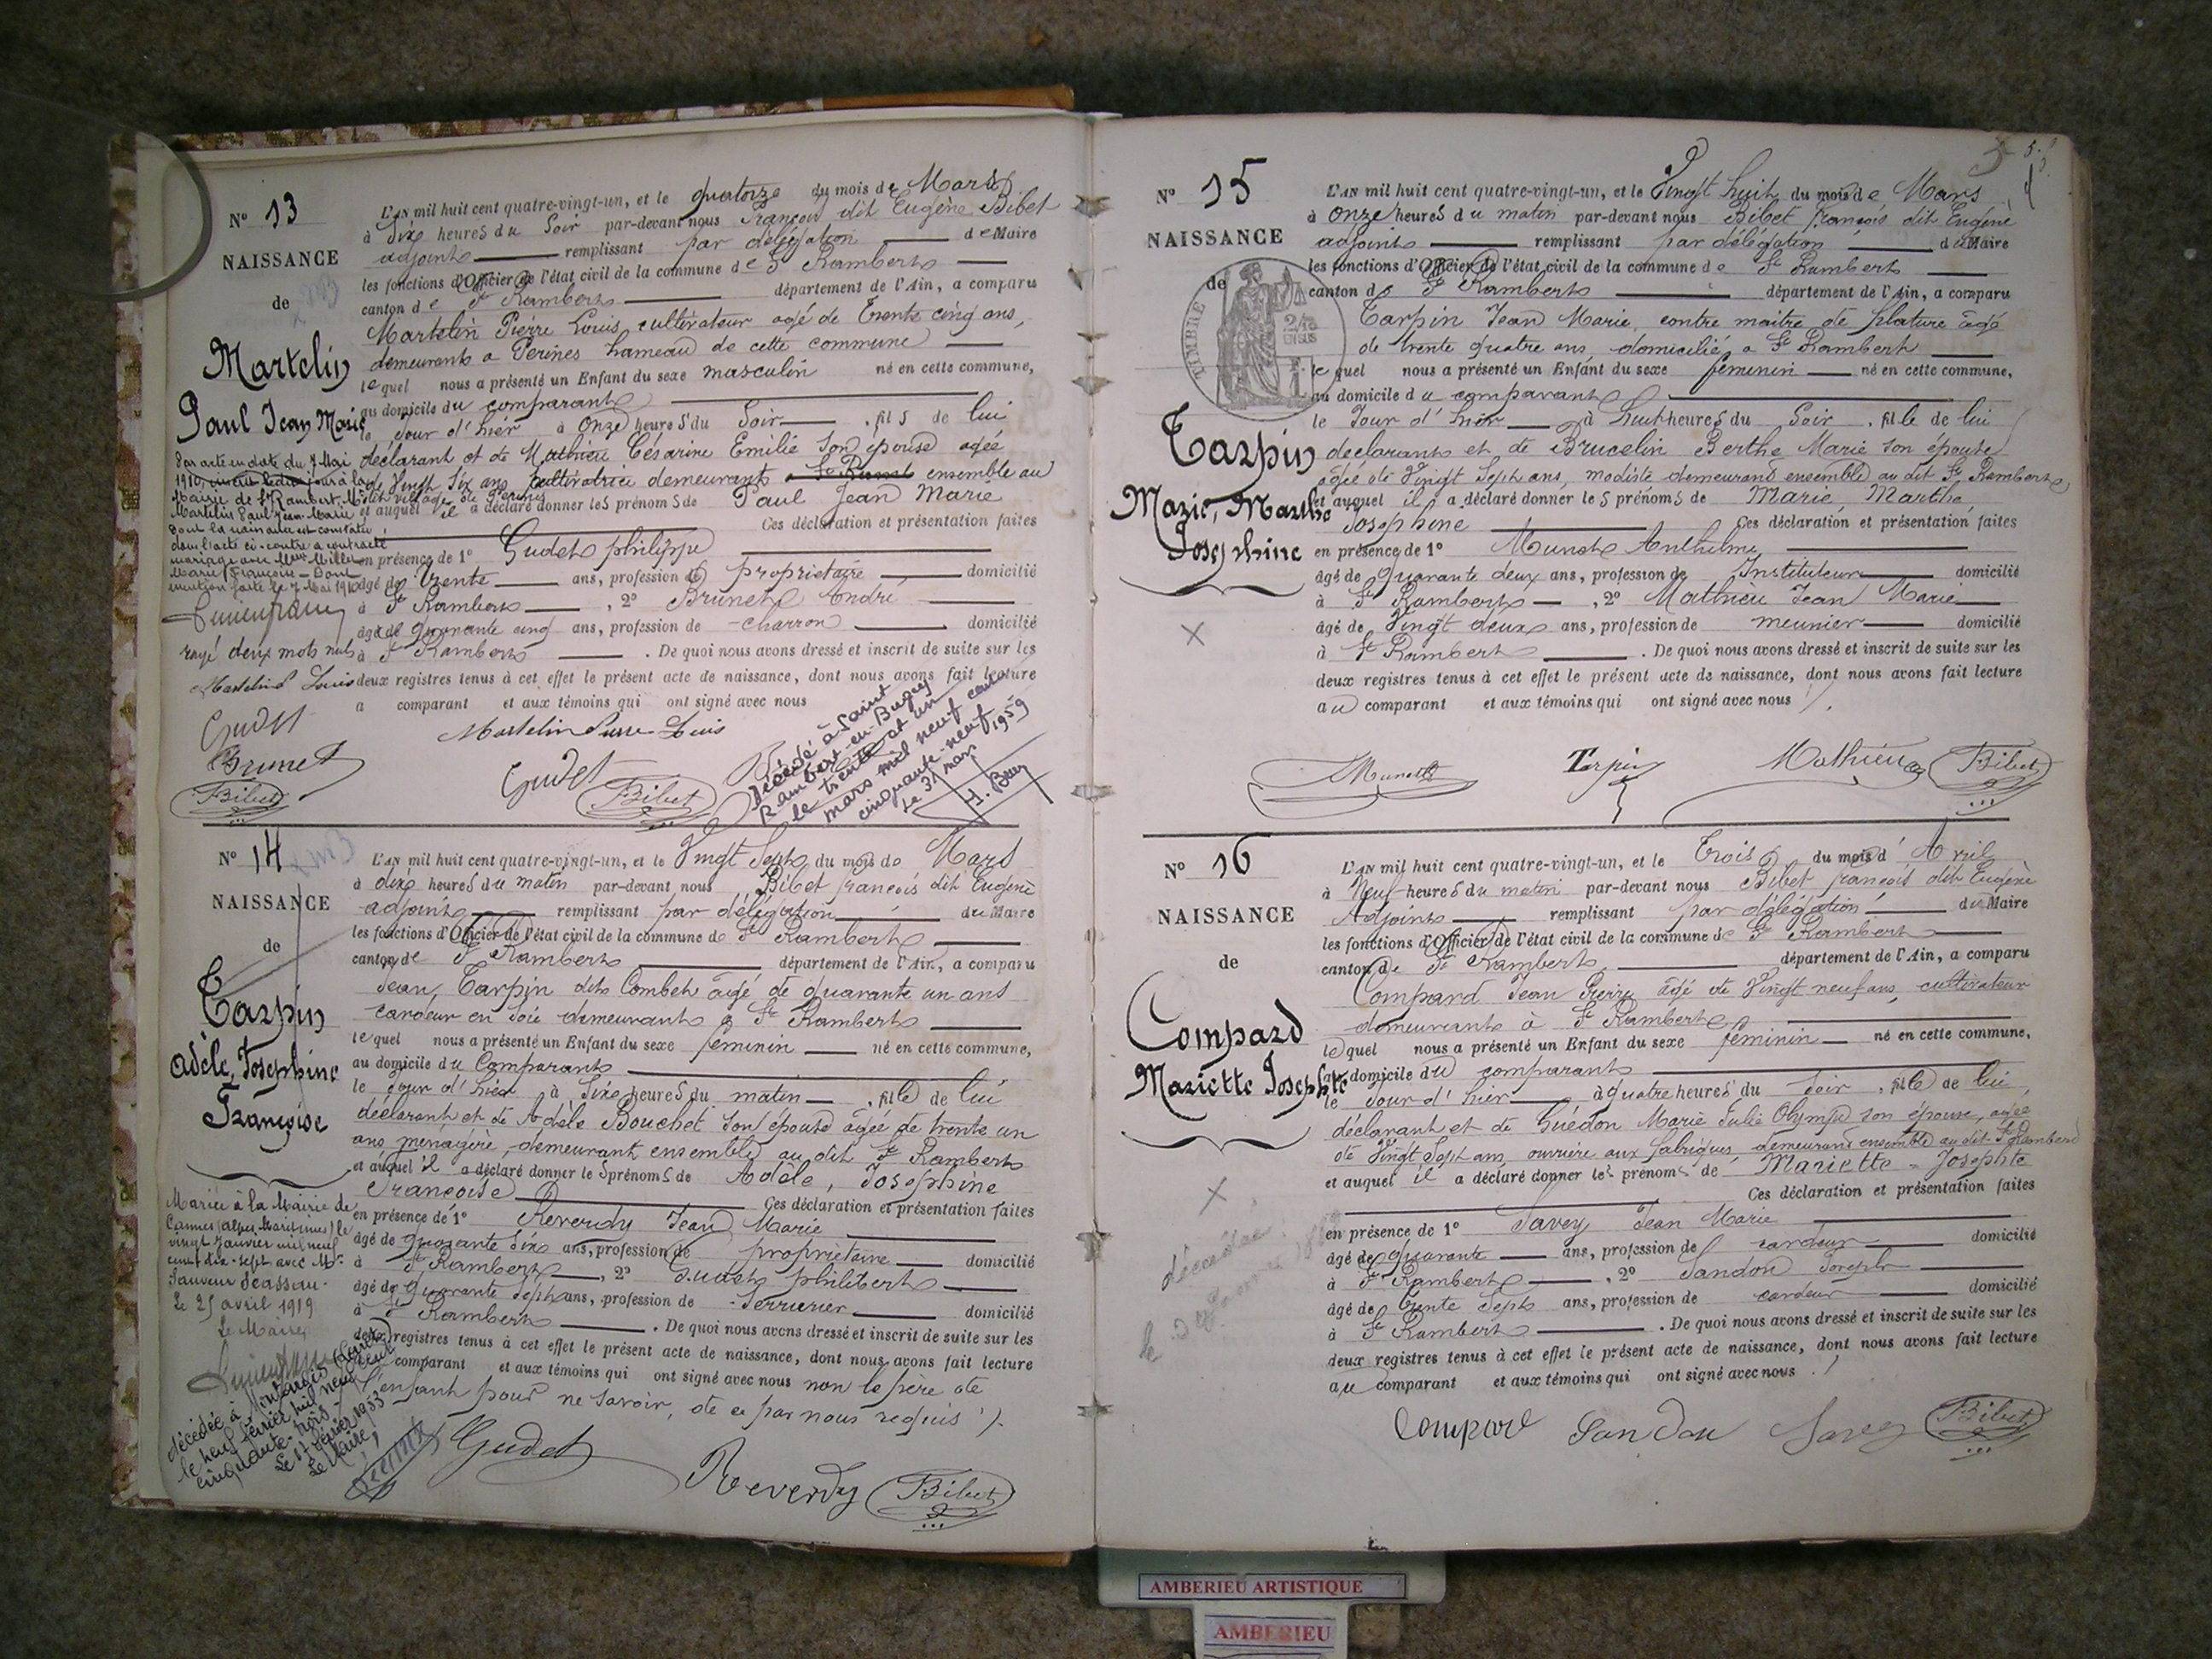 N° 13
NAISSANCE
de
Martelin
Paul Jean Marie
Par acte en date du 7 Mai
1910, jour à la
Mairie de St Rambert, Mr
Martelin Paul Jean Marie
dont la naissance est constatée
dans l'acte ci-contre a contracté
mariage avec Melle Millet
Marie Françoise - Dont
mention faite le 7 Mai 1910
rayé deux mots nuls
Martelin Louis
Gudet
Brunet
Bibet
L'AN mil huit cent quatre-vingt-un, et le quatorze du mois de Mars
à Six heures du Soir par-devant nous François dit Eugène Bibet
adjoint remplissant par délégation de Maire
les fonctions d'Officier de l'état civil de la commune de St Rambert
canton de St Rambert département de l'Ain, a comparu
Martelin Pierre Louis cultivateur agé de Trente cinq ans,
demeurant a Perines hameau de cette commune
lequel nous a présenté un Enfant du sexe masculin né en cette commune,
au domicile du comparant
le Jour d'hier à Onze heures du Soir, fils de lui
déclarant et de Mathieu Césarine Emilie son épouse agée
de Vingt Six ans cultivatrice demeurant ensemble au
dit village de Perines
et auquel il a déclaré donner les prénoms de Paul Jean Marie
Ces déclaration et présentation faites
en présence de 1° Gudet philippe
âgé de Trente ans, profession de propriétaire domicilié
à St Rambert, 2° Brunet André
âgé de quarante cinq ans, profession de charron domicilié
à St Rambert. De quoi nous avons dressé et inscrit de suite sur les
deux registres tenus à cet effet le présent acte de naissance, dont nous avons fait lecture
a comparant et aux témoins qui ont signé avec nous
Martelin Pierre Louis
Gudet
Bibet
Décédé à Saint
Rambert-en-Bugey
le trente et un
mars mil neuf cent
cinquante-neuf
Le 31 mars 1959
N° 14
NAISSANCE
de
Tarpin
Adèle, Josephine
Françoise
Mariée à la Mairie de
Cannes (Alpes Maritimes) le
vingt Janvier mil neuf
cent dix-sept avec Mr
Sauveur Scassau.
Le 25 avril 1919
Le Maire,
décédée à
le neuf février mil neuf cent
cinquante-trois
Le 17 février 1953
Le Maire,
L'AN mil huit cent quatre-vingt-un, et le Vingt Sept du mois de Mars
à dix heures du matin par-devant nous Bibet françois dit Eugène
adjoint remplissant par délégation du Maire
les fonctions d'Officier de l'état civil de la commune de St Rambert
canton de St Rambert département de l'Ain, a comparu
Jean Tarpin dit Combet âgé de quarante un ans
cardeur en soie demeurant a St Rambert
lequel nous a présenté un Enfant du sexe féminin né en cette commune,
au domicile du Comparant
le Jour d'hier à Six heures du matin, fille de lui
déclarant et de Adèle Bouchet son épouse âgée de trente un
ans ménagère, demeurant ensemble au dit St Rambert
et auquel il a déclaré donner les prénoms de Adèle, Joséphine
Françoise Ces déclaration et présentation faites
en présence de 1° Reverdy Jean Marie
âgé de quarante Six ans, profession de propriétaire domicilié
à St Rambert, 2° Gudet philibert
âgé de quarante Sept ans, profession de Serrurier domicilié
à St Rambert. De quoi nous avons dressé et inscrit de suite sur les
deux registres tenus à cet effet le présent acte de naissance, dont nous avons fait lecture
comparant et aux témoins qui ont signé avec nous non le père de
l'enfant pour ne savoir, de ce par nous requis
Gudet
Reverdy
Bibet
N° 15
NAISSANCE
de
TIMBRE
2/10
EN SUS
Tarpin
Marie, Marthe
Josephine
L'AN mil huit cent quatre-vingt-un, et le Vingt huit du mois de Mars
à onze heures du matin par-devant nous Bibet françois dit Eugène
adjoint remplissant par délégation du Maire
les fonctions d'Officier de l'état civil de la commune de St Rambert
canton de St Rambert département de l'Ain, a comparu
Tarpin Jean Marie contre maitre de filature âgé
de trente quatre ans domicilié a St Rambert
lequel nous a présenté un Enfant du sexe féminin né en cette commune,
au domicile du comparant
le Jour d'hier à huit heures du Soir, fille de lui
déclarant et de Brucelin Berthe Marie son épouse
agée de Vingt Sept ans, modiste demeurant ensemble au dit St Rambert,
et auquel il a déclaré donner les prénoms de Marie, Marthe
Josephine Ces déclaration et présentation faites
en présence de 1° Munet Anthelme
âgé de quarante deux ans, profession de Instituteur domicilié
à St Rambert, 2° Mathieu Jean Marie
âgé de Vingt deux ans, profession de meunier domicilié
à St Rambert. De quoi nous avons dressé et inscrit de suite sur les
deux registres tenus à cet effet le présent acte de naissance, dont nous avons fait lecture
au comparant et aux témoins qui ont signé avec nous
Munet
Tarpin
Mathieu
Bibet
N° 16
NAISSANCE
de
Compard
Mariette Josephte
décédée
L'AN mil huit cent quatre-vingt-un, et le Trois du mois d'Avril
à Neuf heures du matin par-devant nous Bibet françois dit Eugène
Adjoint remplissant par délégation du Maire
les fonctions d'Officier de l'état civil de la commune de St Rambert
canton de St Rambert département de l'Ain, a comparu
Compard Jean Pierre âgé de Vingt neuf ans, cultivateur
demeurant à St Rambert
lequel nous a présenté un Enfant du sexe féminin né en cette commune,
au domicile du comparant
le Jour d'hier à quatre heures du soir, fille de lui
déclarant et de Guédon Marie Julie Olympe son épouse, agée
de Vingt Sept ans, ouvrière aux fabriques, demeurant ensemble au dit St Rambert
et auquel il a déclaré donner les prénoms de Mariette - Josephte
Ces déclaration et présentation faites
en présence de 1° Savey Jean Marie
âgé de quarante ans, profession de cardeur domicilié
à St Rambert, 2° Sandon Joseph
âgé de Trente Sept ans, profession de cardeur domicilié
à St Rambert. De quoi nous avons dressé et inscrit de suite sur les
deux registres tenus à cet effet le présent acte de naissance, dont nous avons fait lecture
au comparant et aux témoins qui ont signé avec nous
Compard Sandon Savey Bibet
AMBERIEU ARTISTIQUE
AMBERIEU